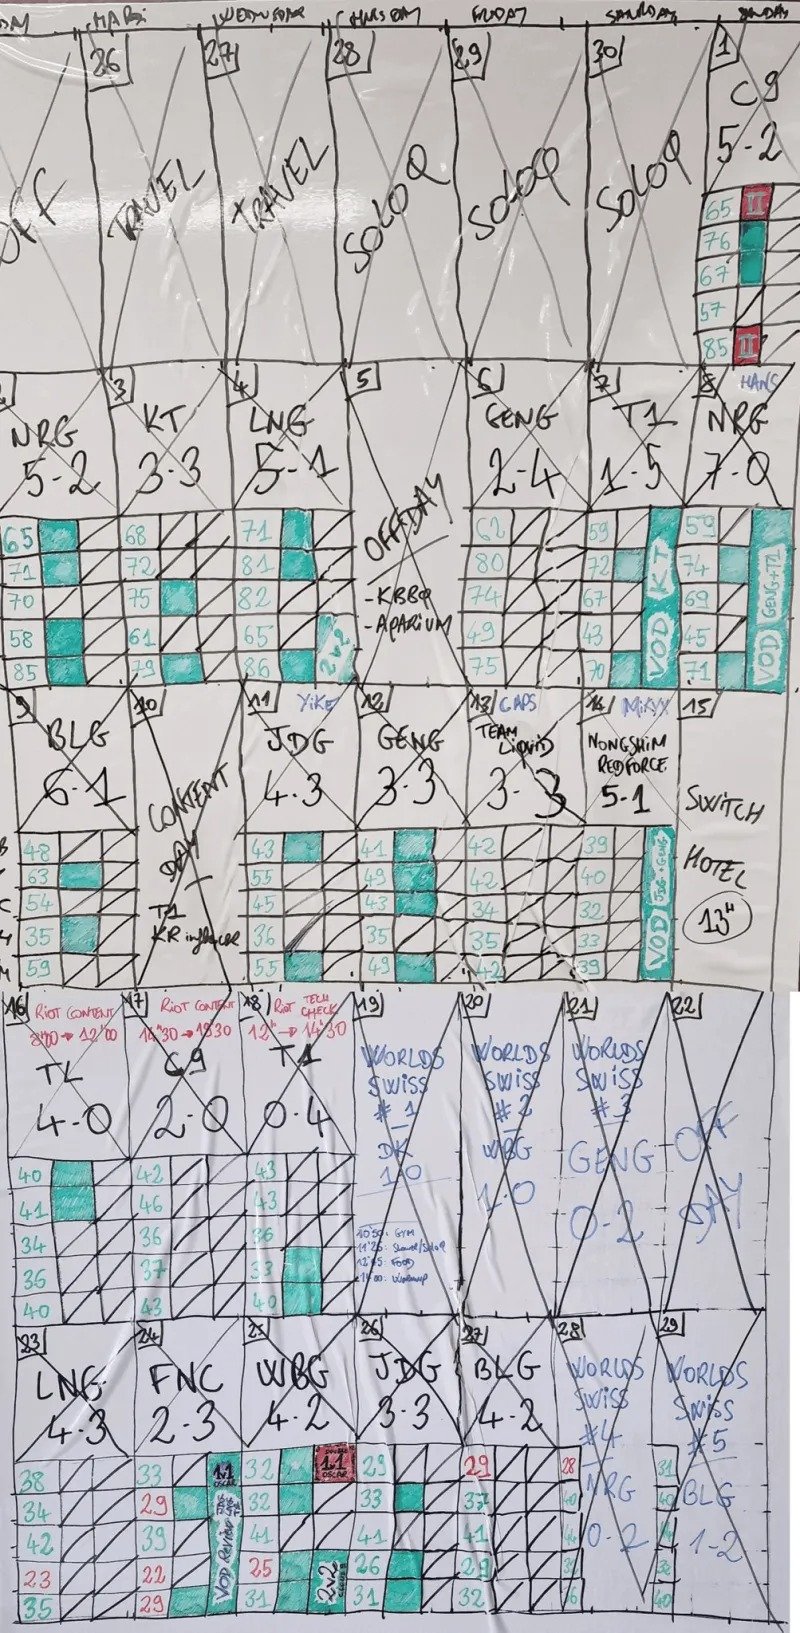 MARDI
WEDNESDAY
FRIDAY
SATURDAY
SUNDAY
26
27
28
29
30
1
OFF
TRAVEL
TRAVEL
SOLOQ
SOLOQ
SOLOQ
C9
5-2
65
76
67
57
85
3
4
5
6
7
8
HANS
NRG
KT
LNG
GENG
T1
NRG
5-2
3-3
5-1
2-4
1-5
7-0
OFFDAY
- KBBQ
- APARIUM
65 68 71 62 59 59
71 72 81 80 72 74
70 75 82 74 67 69
58 61 65 49 43 45
85 79 86 75 70 71
2v2
VOD KT
VOD GENG+T1
9
10
11
YIKE
12
13
CAPS
14
MIKYX
15
BLG
JDG
GENG
TEAM
LIQUID
NONGSHIM
REDFORCE
6-1
4-3
3-3
3-3
5-1
CONTENT
DAY
T1
KR influencer
SWITCH
HOTEL
13H
48 43 41 42 39
63 55 49 42 40
54 45 43 34 32
35 36 35 35 33
59 55 49 42 39
VOD JDG+GENG
16
17
18
19
20
21
22
RIOT CONTENT
RIOT CONTENT
RIOT TECH
CHECK
TL
C9
T1
4-0
2-0
0-4
WORLDS
SWISS
#1
DK
1-0
WORLDS
SWISS
#2
WBG
1-0
WORLDS
SWISS
#3
GENG
0-2
OFF
DAY
40 42 43
41 46 43
34 36 36
36 37 33
40 43 40
23
24
25
26
27
28
29
LNG
FNC
WBG
JDG
BLG
4-3
2-3
4-2
3-3
4-2
WORLDS
SWISS
#4
NRG
0-2
WORLDS
SWISS
#5
BLG
1-2
38 33 32 29 29 28 31
34 29 32 33 37
42 39 41 41 41
23 22 25 26 29
35 29 31 31 32
1v1
OSCAR
VOD Review
1v1
OSCAR
2v2